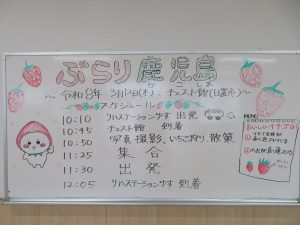 ぶらり鹿児島
かごしま
～令和8年 3月12日(木) チェスト館(日置市)～
スケジュール
10:10 リハステーションやす 出発
10:45 チェスト館 到着
10:50 写真撮影、いちご狩り、散策
11:25 集合
11:30 出発
12:05 リハステーションやす 到着
MEMO
おいしいイチゴは!